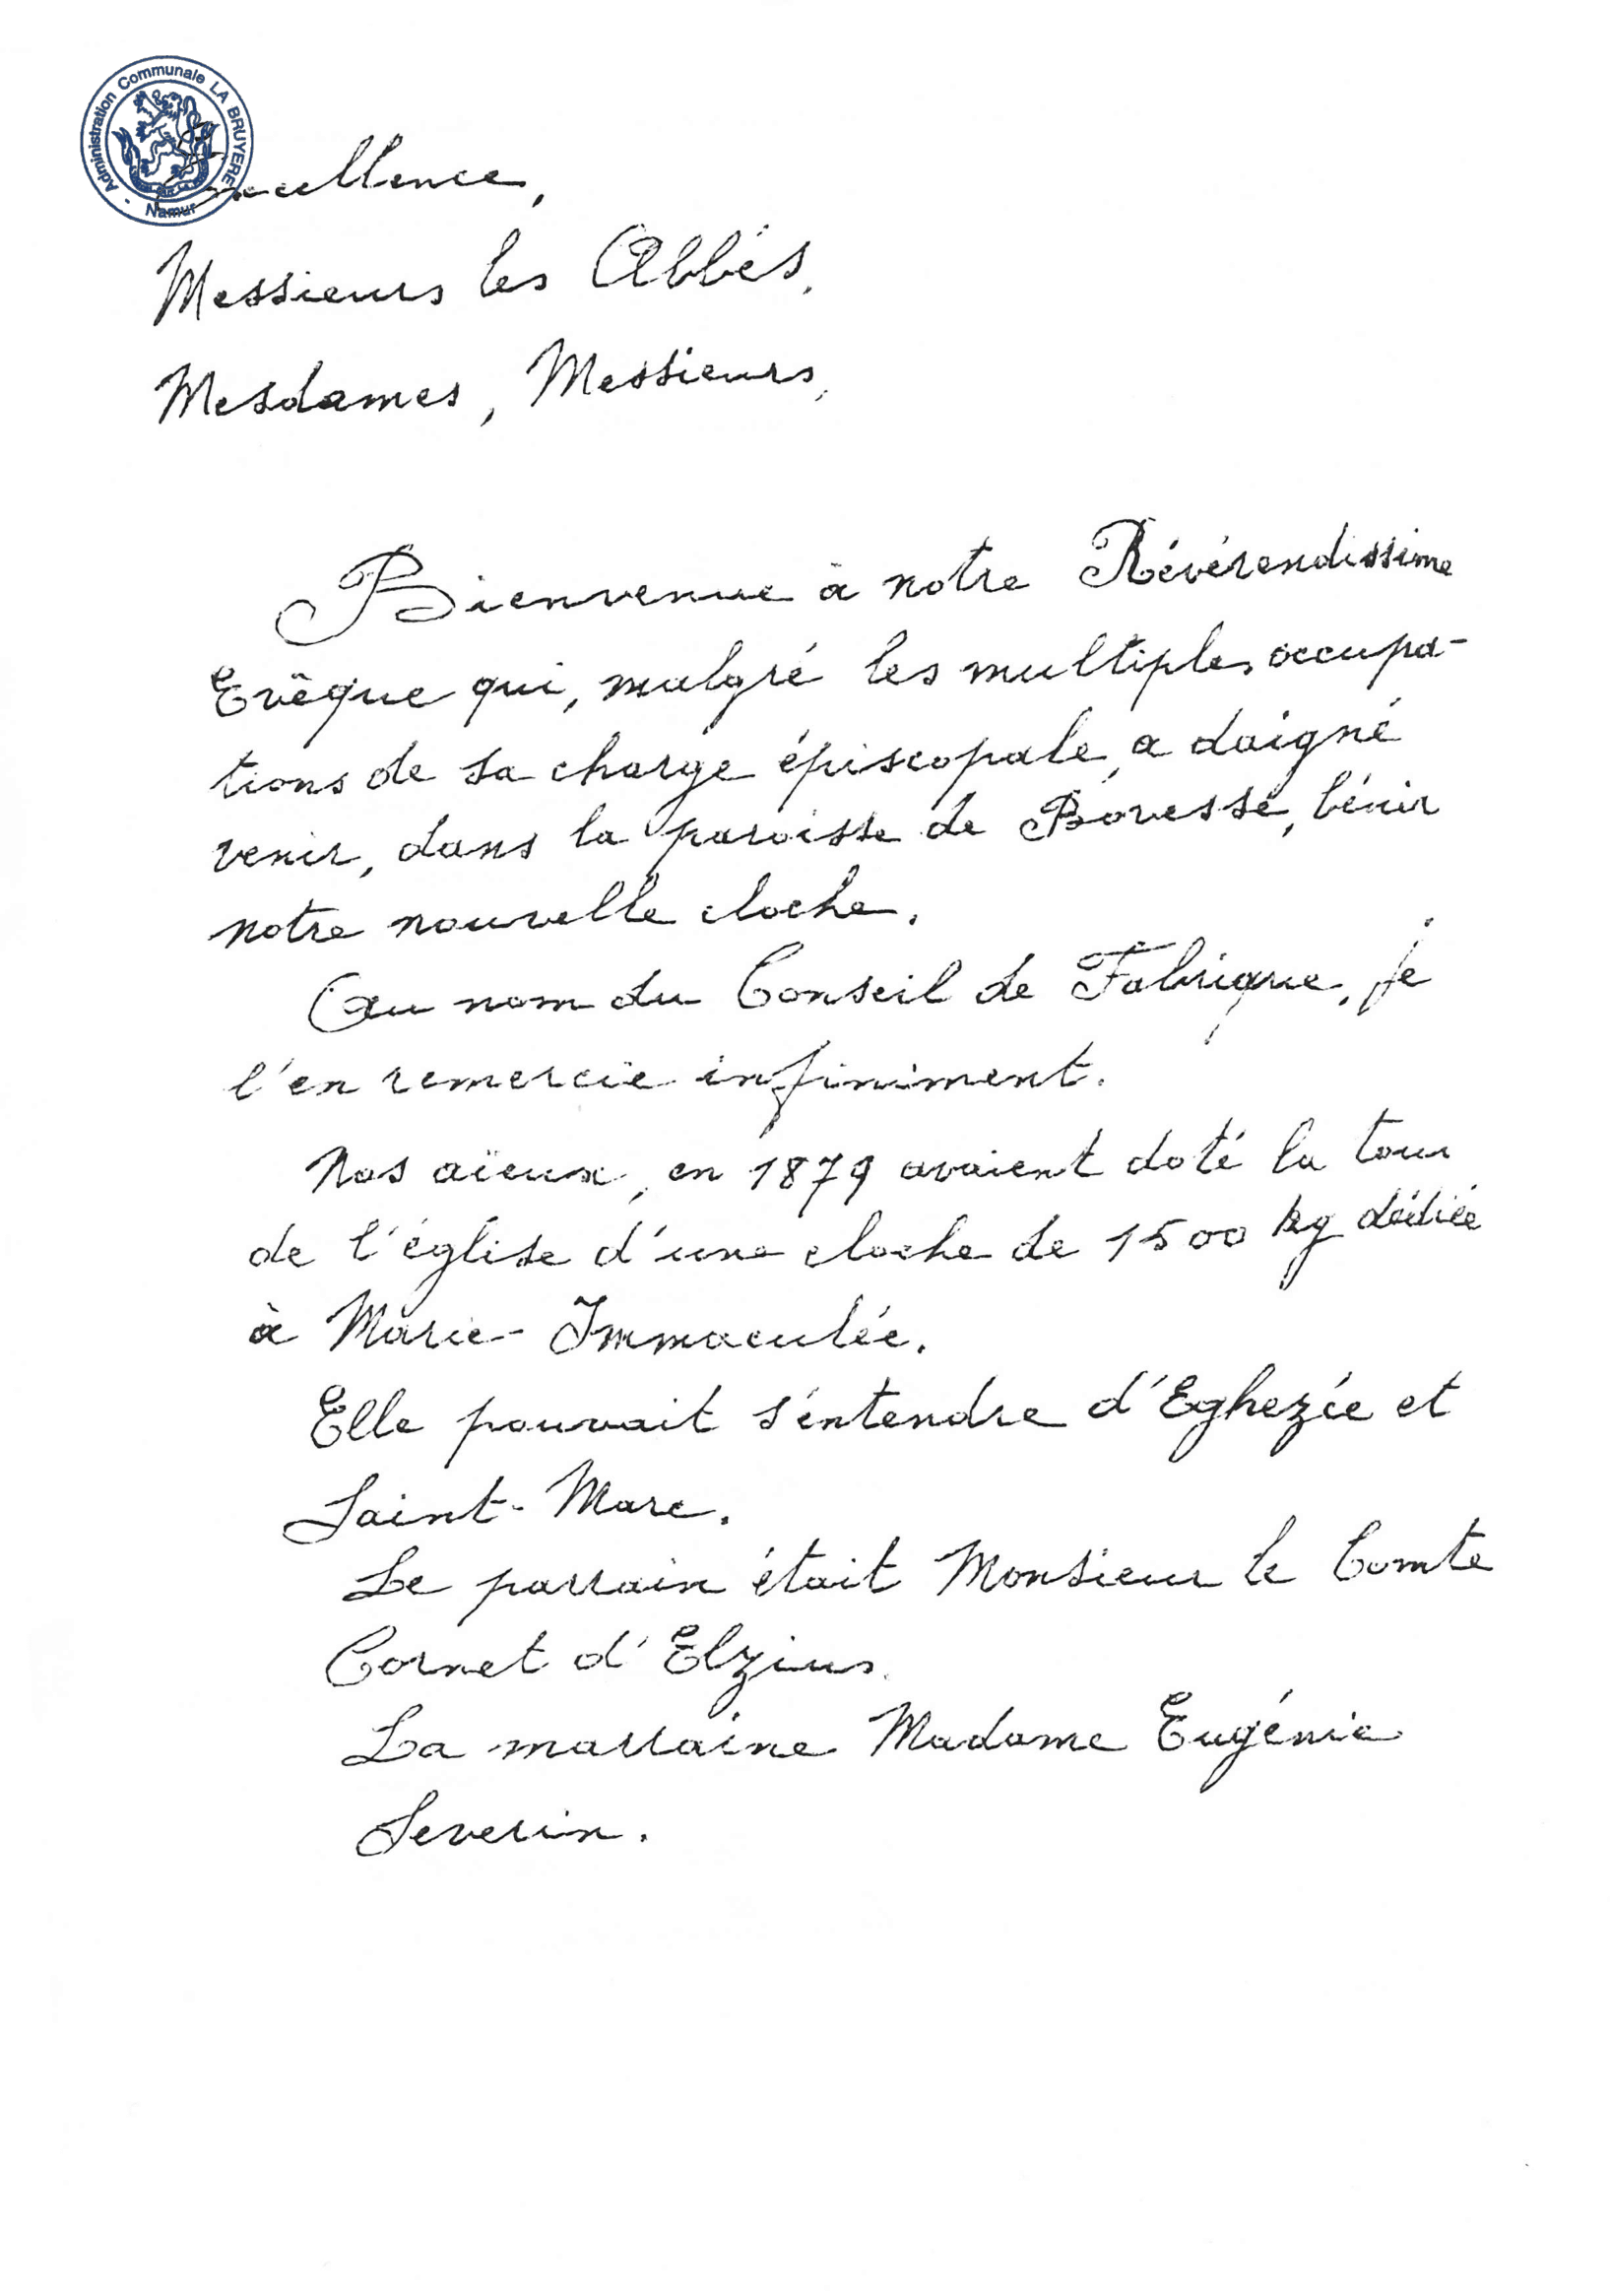 Administration Communale LA BRUYERE - Namur -
Excellence,
Messieurs les Abbés,
Mesdames, Messieurs,
Bienvenue à notre Révérendissime
Evêque qui, malgré les multiples occupa-
tions de sa charge épiscopale, a daigné
venir, dans la paroisse de Bovesse, bénir
notre nouvelle cloche.
Au nom du Conseil de Fabrique, je
l'en remercie infiniment.
Nos aïeux, en 1879 avaient doté la tour
de l'église d'une cloche de 1500 kg dédiée
à Marie-Immaculée.
Elle pouvait s'entendre d'Eghezée et
Saint-Marc.
Le parrain était Monsieur le Comte
Cornet d'Elzius.
La marraine Madame Eugénie
Severin.